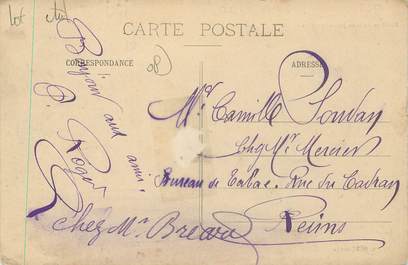 CARTE POSTALE
CORRESPONDANCE
ADRESSE
Bonjour aux amis.
Roger
Chez Mr
Mr Camille
Chez Mr Mercier
Bureau de Tabac. Rue du Cadran
Reims